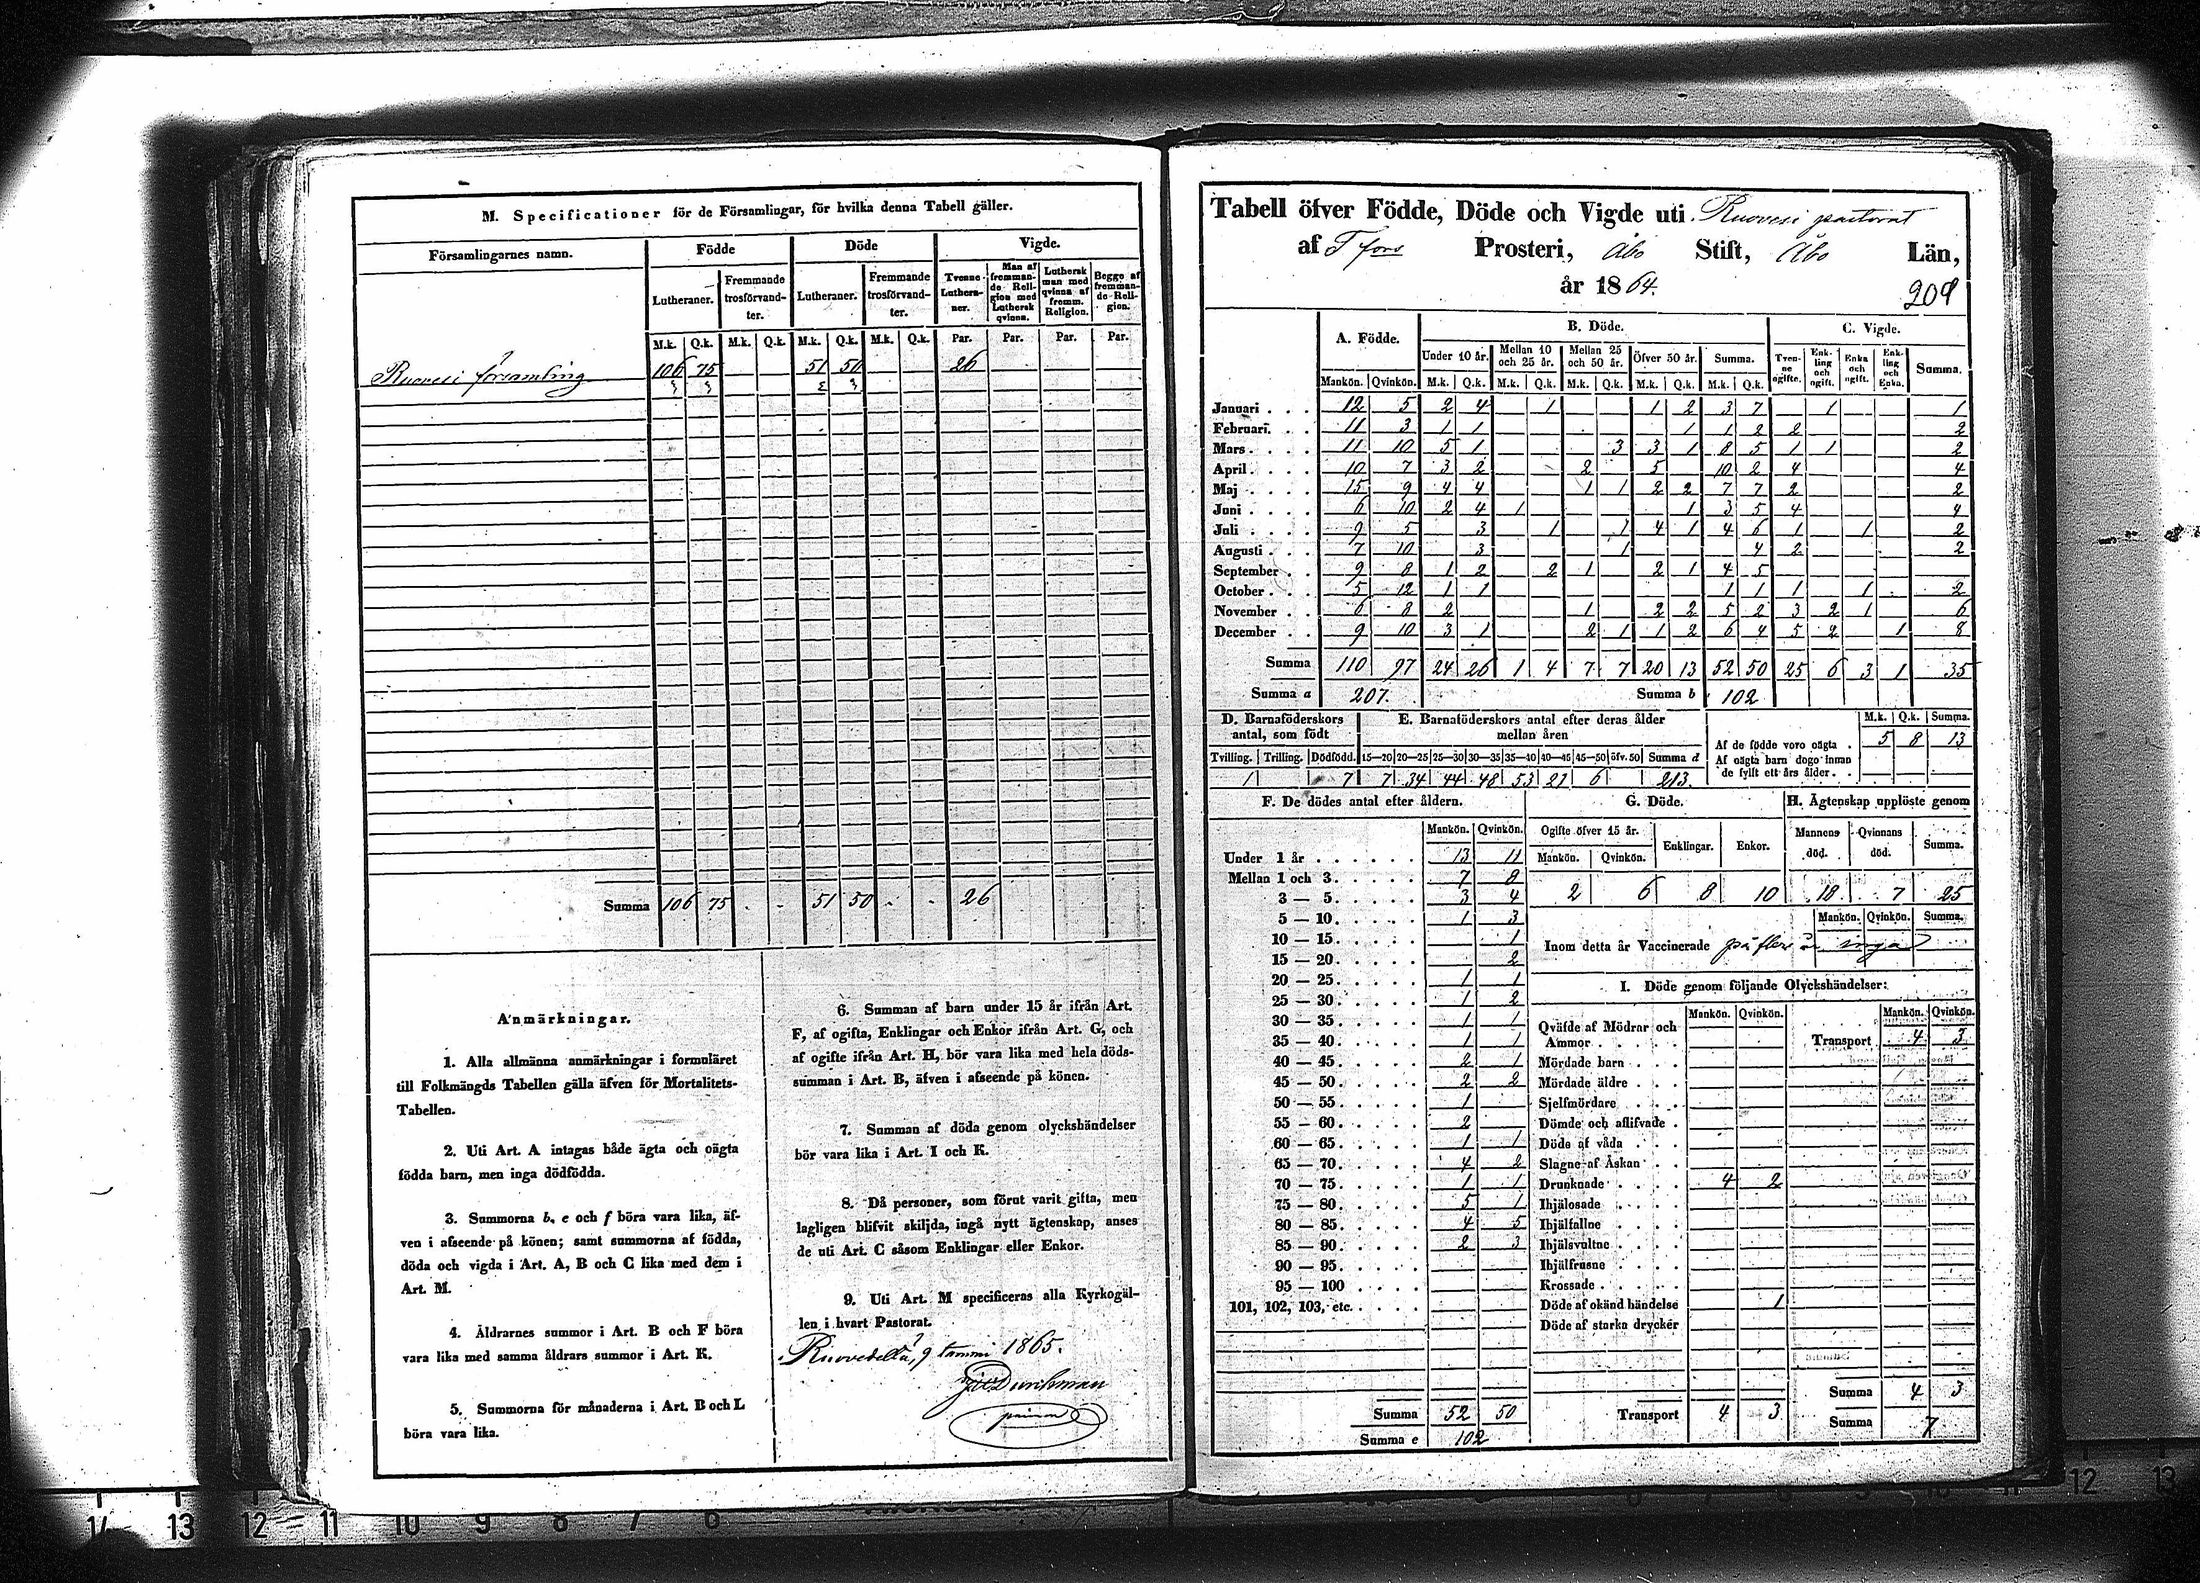 M. Specificationer för de Församlingar, för hvilka denna Tabell gäller.
Församlingarnes namn. Födde Döde Vigde.
Lutheraner. Fremmande trosförvandter. Lutheraner. Fremmande trosförvandter. Tvenne Lutheraner. Man af fremmande Religion med Luthersk qvinna. Luthersk man med qvinna af fremm. Religion. Begge af fremmande Religion.
M.k. Q.k. M.k. Q.k. M.k. Q.k. M.k. Q.k. Par. Par. Par. Par.
Ruovesi församling 106 75 51 50 26
Summa 106 75 - - 51 50 - - 26
Anmärkningar.
1. Alla allmänna anmärkningar i formuläret
till Folkmängds Tabellen gälla äfven för Mortalitets-
Tabellen.
2. Uti Art. A intagas både ägta och oägta
födda barn, men inga dödfödda.
3. Summorna b, e och f böra vara lika, äf-
ven i afseende på könen; samt summorna af födda,
döda och vigda i Art. A, B och C lika med dem i
Art. M.
4. Åldrarnes summor i Art. B och F böra
vara lika med samma åldrars summor i Art. K.
5. Summorna för månaderna i Art. B och L
böra vara lika.
6. Summan af barn under 15 år ifrån Art.
F, af ogifta, Enklingar och Enkor ifrån Art. G, och
af ogifte ifrån Art. H, bör vara lika med hela döds-
summan i Art. B, äfven i afseende på könen.
7. Summan af döda genom olyckshändelser
bör vara lika i Art. I och K.
8. Då personer, som förut varit gifta, men
lagligen blifvit skiljda, ingå nytt ägtenskap, anses
de uti Art. C såsom Enklingar eller Enkor.
9. Uti Art. M specificeras alla Kyrkogäl-
len i hvart Pastorat.
Ruovedellä, 9 tammi 1865.
Durchman
Tabell öfver Födde, Döde och Vigde uti Ruovesi pastorat
af T fors Prosteri, Åbo Stift, Åbo Län,
år 1864.
209
A. Födde. B. Döde. C. Vigde.
Under 10 år. Mellan 10 och 25 år. Mellan 25 och 50 år. Öfver 50 år. Summa. Tvenne ogifte. Enkling och ogift. Enka och ogift. Enkling och Enka. Summa.
Mankön. Qvinkön. M.k. Q.k. M.k. Q.k. M.k. Q.k. M.k. Q.k. M.k. Q.k.
Januari 12 5 2 4 1 1 2 3 7 1 1
Februari 11 3 1 1 1 1 2 2 2
Mars 11 10 5 1 3 3 1 8 5 1 1 2
April 10 7 3 2 2 5 10 2 4 4
Maj 15 9 4 4 1 1 2 2 7 7 2 2
Juni 6 10 2 4 1 1 3 5 4 4
Juli 9 5 3 1 1 4 1 4 6 1 1 2
Augusti 7 10 3 1 4 2 2
September 9 8 1 2 2 1 2 1 4 5
October 5 12 1 1 1 1 1 1 2
November 6 8 2 1 2 2 5 2 3 2 1 6
December 9 10 3 1 2 1 1 2 6 4 5 2 1 8
Summa 110 97 24 26 1 4 7 7 20 13 52 50 25 6 3 1 35
Summa a 207. Summa b 102
D. Barnaföderskors antal, som födt
Tvilling. Trilling. Dödfödd.
1 7
E. Barnaföderskors antal efter deras ålder mellan åren
15—20 20—25 25—30 30—35 35—40 40—45 45—50 öfv. 50 Summa d
7 34 44 48 53 21 6 213.
M.k. Q.k. Summa.
Af de födde voro oägta 5 8 13
Af oägta barn dogo inman de fyllt ett års ålder.
F. De dödes antal efter åldern.
Mankön. Qvinkön.
Under 1 år 13 11
Mellan 1 och 3. 7 8
3 — 5. 3 4
5 — 10. 1 3
10 — 15. 1
15 — 20. 2
20 — 25. 1 1
25 — 30. 1 2
30 — 35. 1 1
35 — 40. 1 1
40 — 45. 2 1
45 — 50. 2 2
50 — 55. 1
55 — 60. 2
60 — 65. 1 1
65 — 70. 4 2
70 — 75. 1 1
75 — 80. 5 1
80 — 85. 4 5
85 — 90. 2 3
90 — 95.
95 — 100
101, 102, 103, etc.
Summa 52 50
Summa e 102
G. Döde.
Ogifte öfver 15 år. Enklingar. Enkor.
Mankön. Qvinkön.
2 6 8 10
H. Ägtenskap upplöste genom
Mannens död. Qvinnans död. Summa.
18 7 25
Mankön. Qvinkön. Summa.
Inom detta år Vaccinerade på flere år inga
I. Döde genom följande Olyckshändelser:
Mankön. Qvinkön. Mankön. Qvinkön.
Qväfde af Mödrar och Ammor
Transport 4 3
Mördade barn
Mördade äldre
Sjelfmördare
Dömde och aflifvade
Döde af våda
Slagne af Åskan
Drunknade 4 2
Ihjälosade
Ihjälfallne
Ihjälsvultne
Ihjälfrusne
Krossade
Döde af okänd händelse 1
Döde af starka drycker
Transport 4 3
Summa 4 3
Summa 7